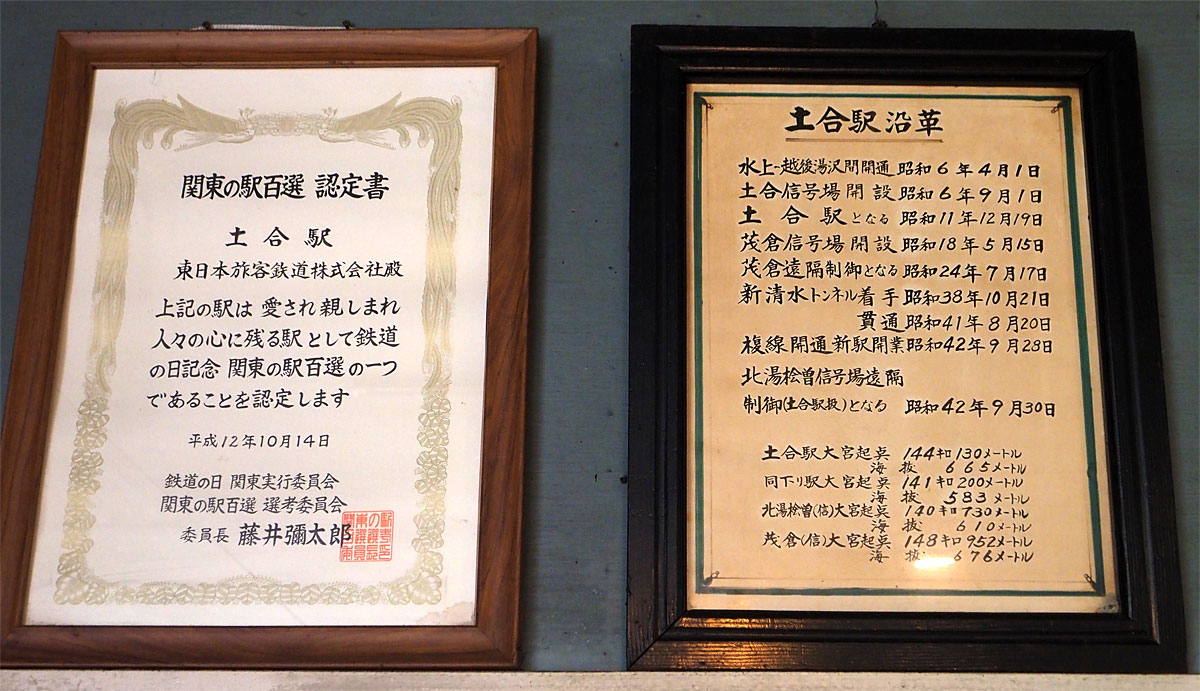 関東の駅百選 認定書
土合駅
東日本旅客鉄道株式会社殿
上記の駅は 愛され親しまれ
人々の心に残る駅として鉄道
の日記念 関東の駅百選の一つ
であることを認定します
平成12年10月14日
鉄道の日 関東実行委員会
関東の駅百選 選考委員会
委員長 藤井彌太郎
土合駅沿革
水上-越後湯沢間開通 昭和6年4月1日
土合信号場開設 昭和6年9月1日
土合駅となる 昭和11年12月19日
茂倉信号場開設 昭和18年5月15日
茂倉遠隔制御となる 昭和24年7月17日
新清水トンネル着手 昭和38年10月21日
貫通 昭和41年8月20日
複線開通新駅開業 昭和42年9月28日
北湯桧曽信号場遠隔
制御(土合駅扱)となる 昭和42年9月30日
土合駅大宮起点 144キロ130メートル
海抜 665メートル
同下り駅大宮起点 141キロ200メートル
海抜 583メートル
北湯桧曽(信)大宮起点 140キロ730メートル
海抜 610メートル
茂倉(信)大宮起点 148キロ952メートル
海抜 676メートル